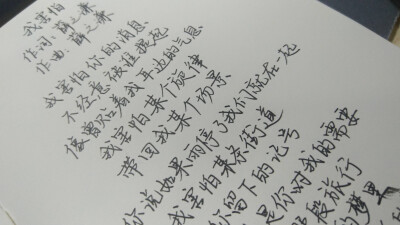 我害怕
作词：薛之谦
作曲：薛之谦
我害怕你的消息
不经意被谁提起
像曾贴着我耳边的气息
我害怕某个旋律
带回我某个场景
你说如果雨停了我们就在一起
我害怕某条街道
你留下的记号
是你对我的需要
那段旅行
的梦里